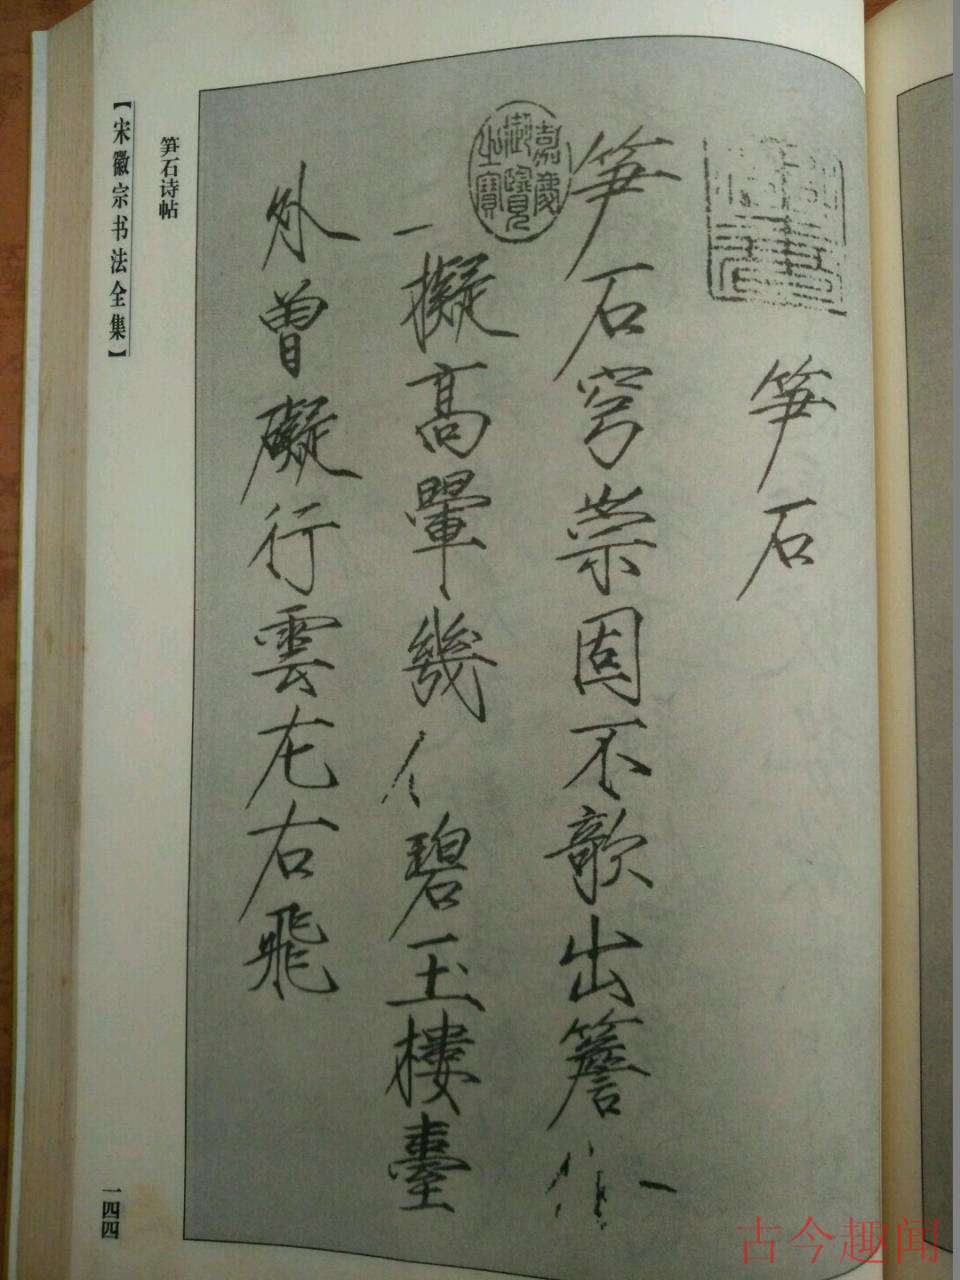 笋石
笋石穹崇固不欹出簷
一擬高翬幾碧玉樓臺
外曾礙行雲左右飛
嘉慶
御覽
之寶
笋石诗帖
【宋徽宗书法全集】
一四四
古今趣闻